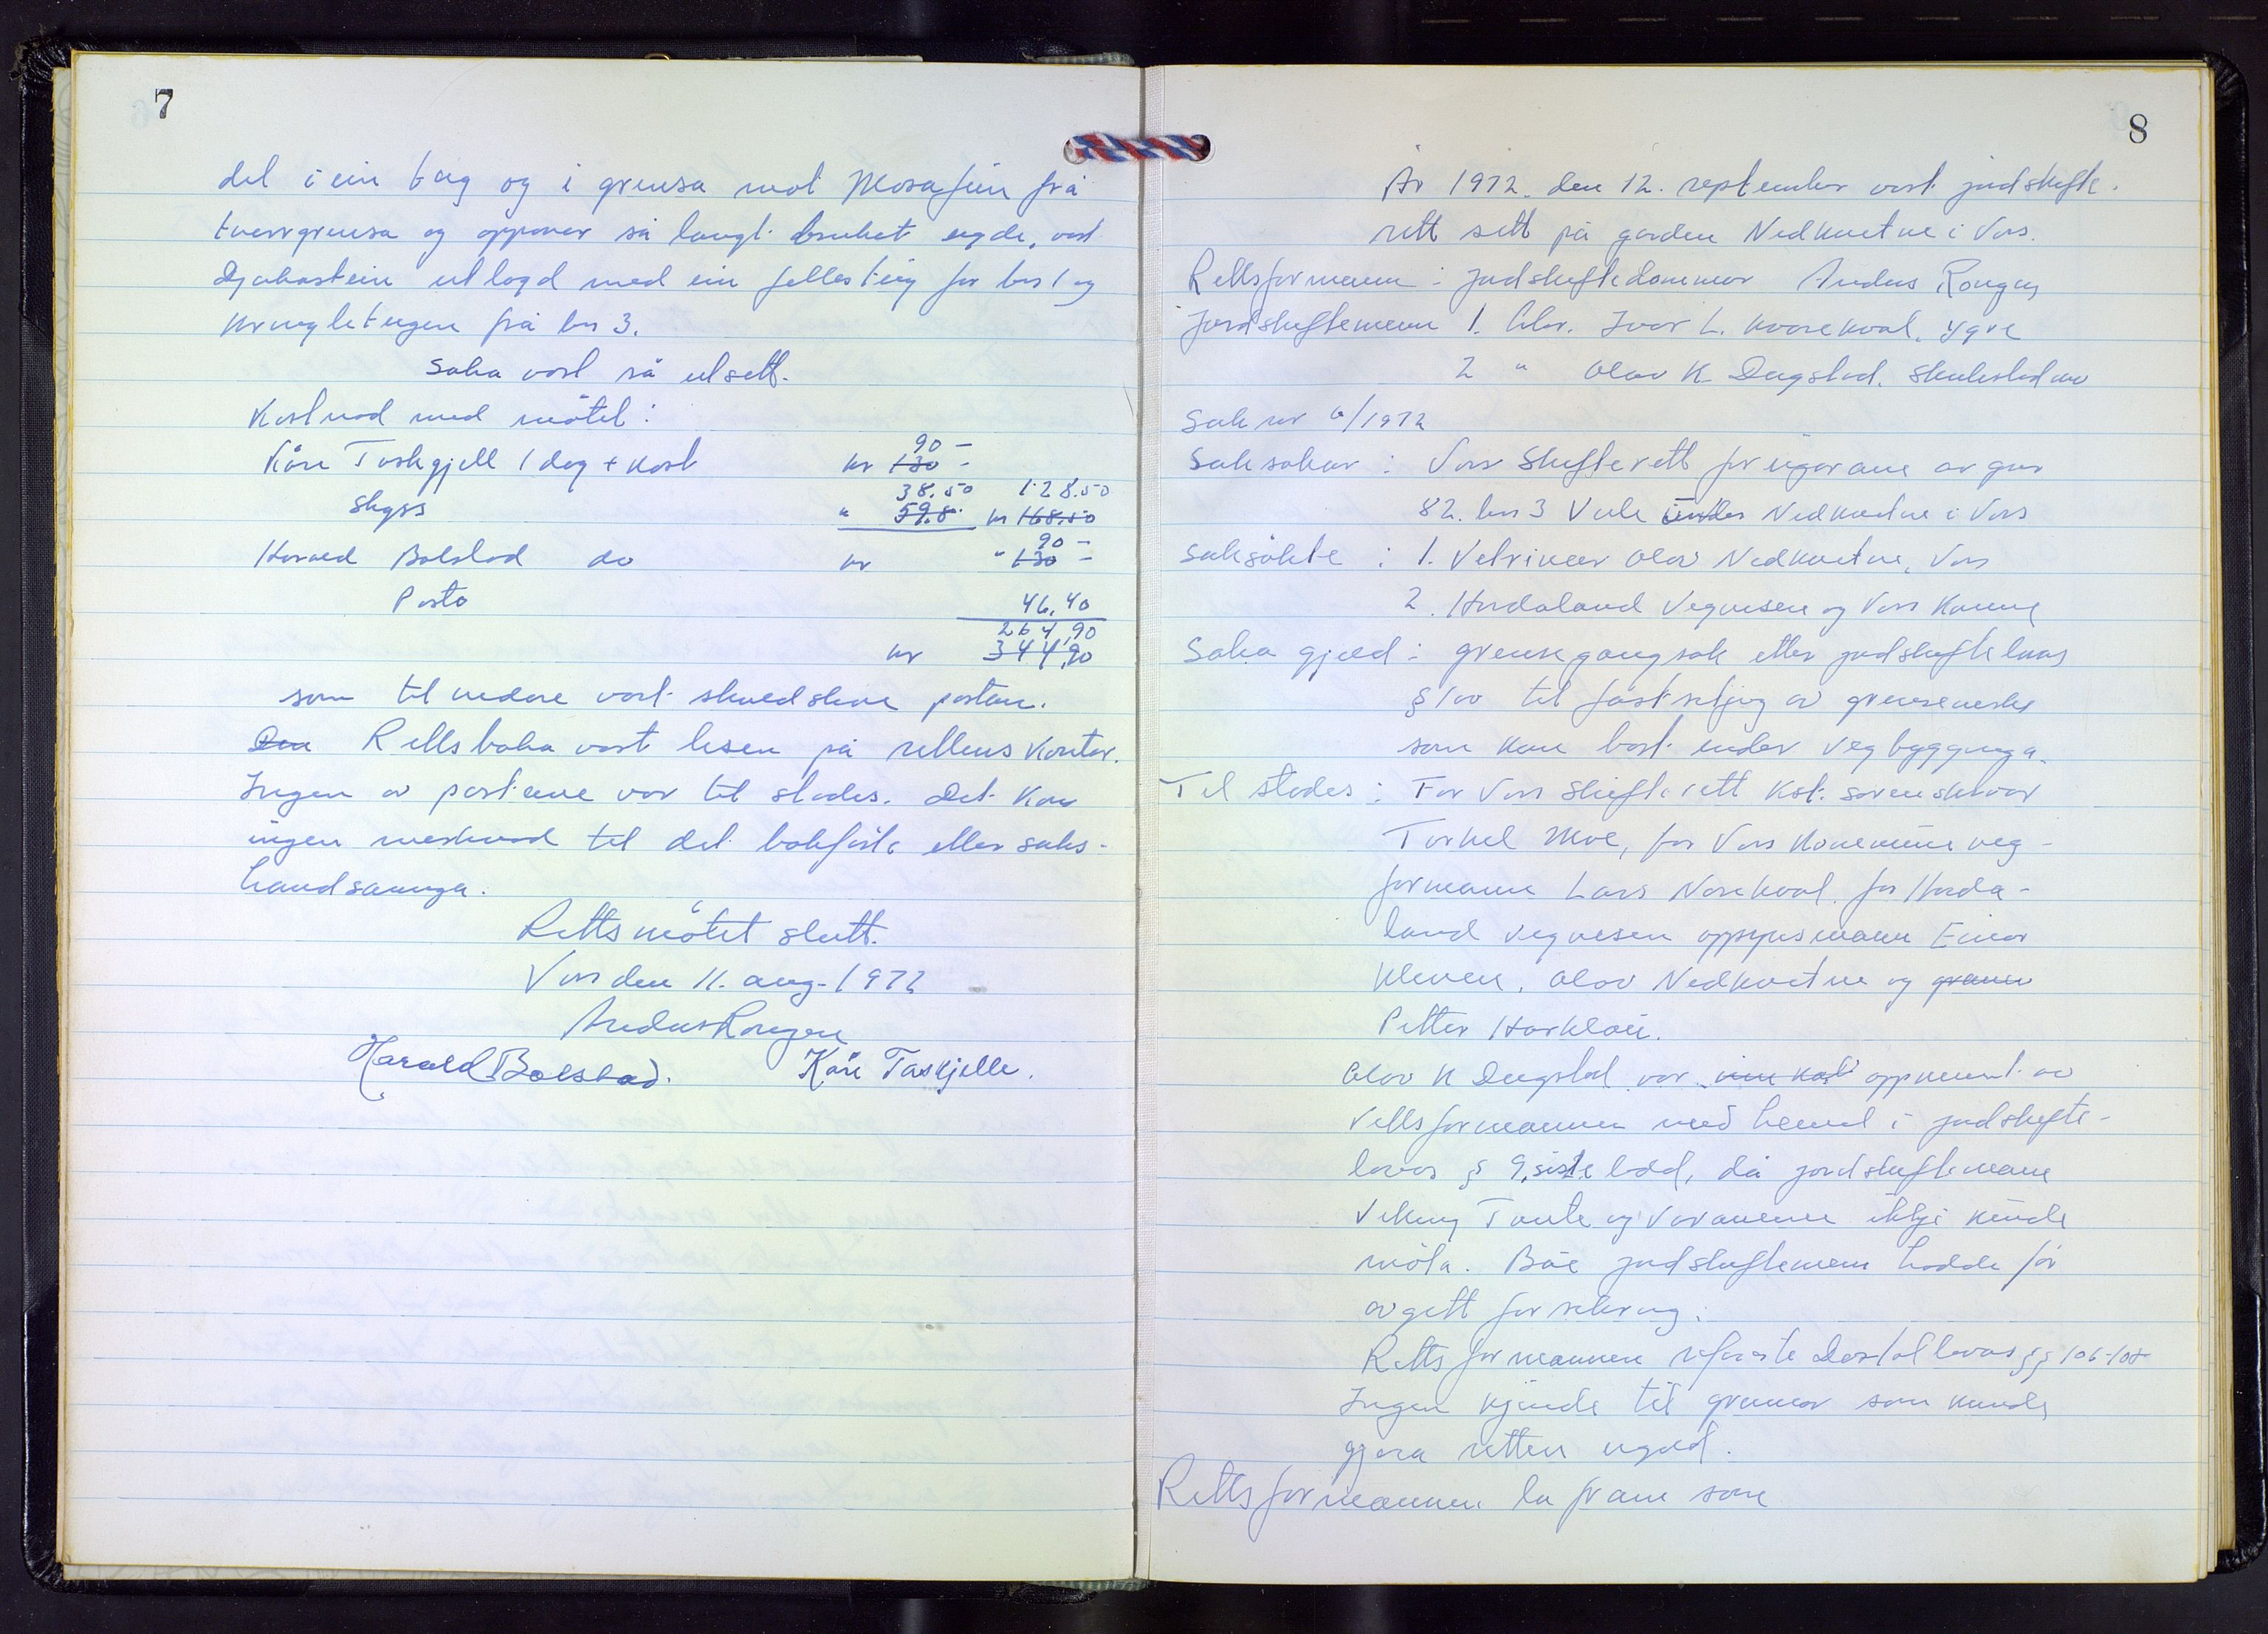 7
del i ein teig og i grensa mot Mosafinn frå
tverrgrensa og oppover så langt bruket eigde, vart
Djukastein utlagd med ein fellesteig for bnr 1 og
Kringleteigen frå bnr 3.
Saka vart så utsett.
Kostnad med møtet:
90 -
Kåre Taskjell 1 dag + kost kr 130 -
38.50 128.50
Skyss " 59.8 kr 168.50
90 -
Harald Bolstad do kr " 130 -
Porto 46,40
264,90
kr 344,90
som til nedare vart skuldskive partane.
Den Rettsboka vart lesen på rettens kontor.
Ingen av partane var til stades. Det kom
ingen merknad til det bokførte eller saks-
handsaminga.
Rettsmøtet slutt.
Voss den 11. aug. 1972
Anders Rongen
Harald Bolstad. Kåre Taskjelle.
8
År 1972 den 12. september vart jordskifte-
rett sett på garden Nedkvitne i Voss.
Rettsformann: jordskiftedommar Anders Rongen
Jordskiftemenn 1. Gbr. Ivar L. Kvarekvål, Ygre
2 " Olav K Dagstad, Skulestadmo
Sak nr 6/1972
Saksøkar: Voss Skifterett for eigarane av gnr
82. bnr 3 Vele under Nedkvitne i Voss
Saksøkte: 1. Vetrinær Olav Nedkvitne, Voss
2. Hordaland Vegvesen og Voss Kommune
Saka gjeld: grensegangsak etter jordskiftelova
§ 100 til fastsetjing av grensemerke
som kom bort under vegbygginga.
Til stades: For Voss Skifterett kst. sorenskrivar
Torkel Moe, for Voss Kommune veg-
formann Lars Norekvål, for Horda-
land vegvesen oppsynsmann Einar
Kleven, Olav Nedkvitne og
Petter Harkløi.
Olav K Dagstad var innkal oppnemnt av
rettsformannen med heimel i jordskifte-
lovas § 9, siste ledd, då jordskiftemann
Viking Tvinte og varamenn ikkje kunde
møta. Båe jordskiftemenn hadde før
avgitt forsikring.
Rettsformannen refererte Domstollovas §§ 106-108
Ingen kjende til grunnar som kunde
gjera retten ugild.
Rettsformannen la fram som